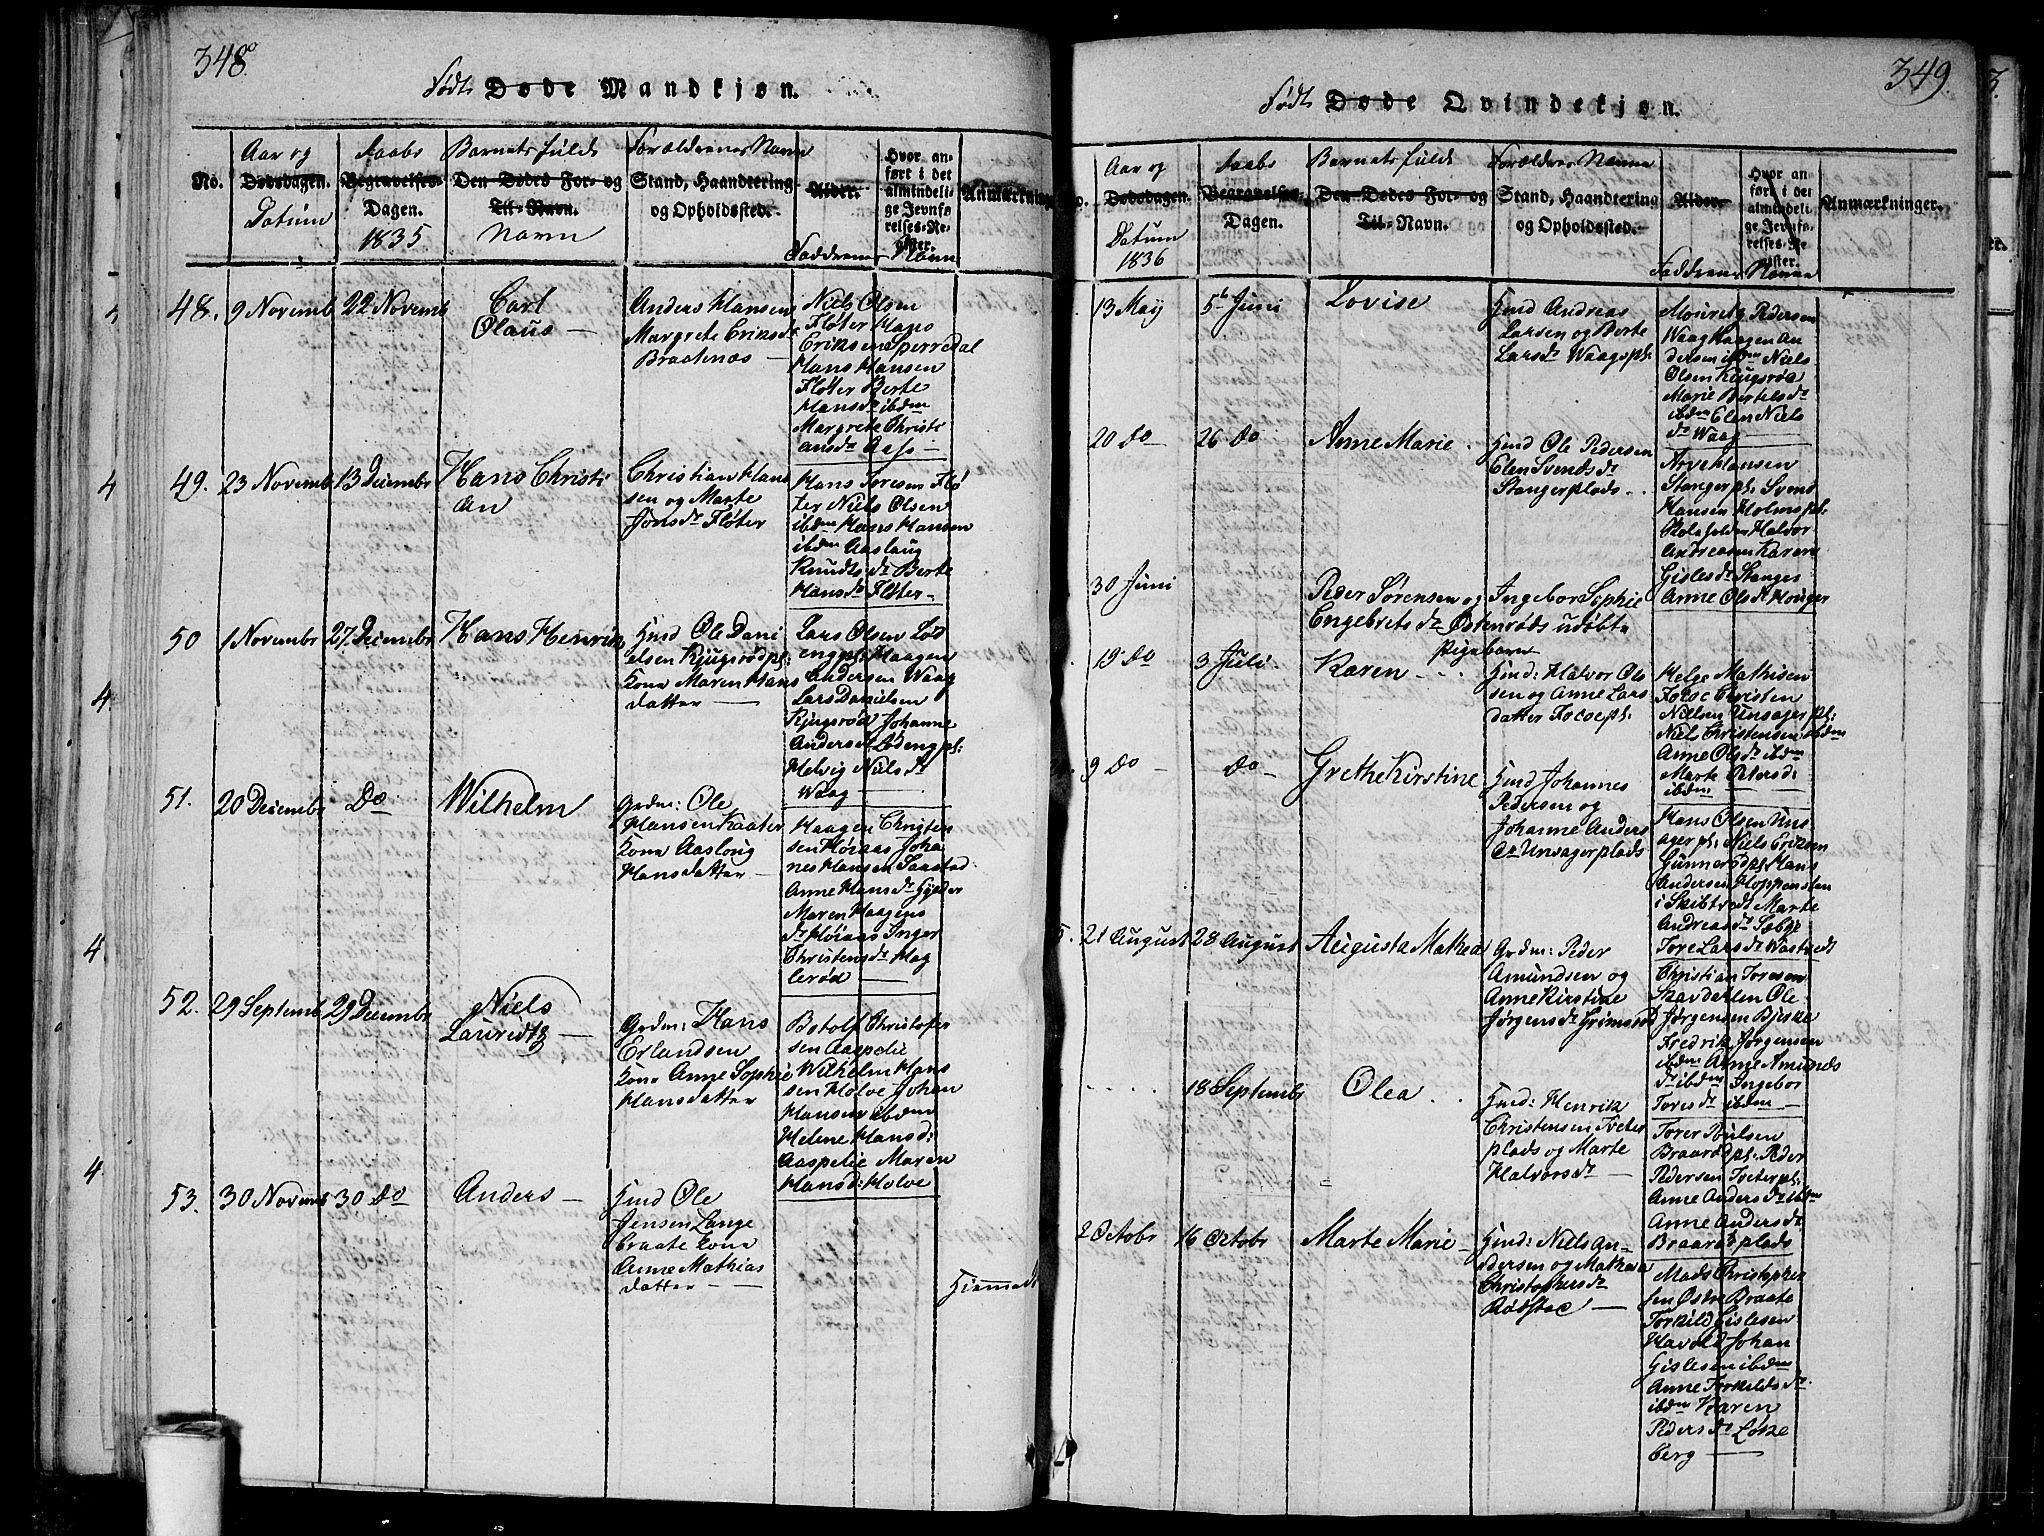 348
Født Døde Mandkjøn.
No.
Aar og
Dødsdagen.
Datum
Daabs
Begravelses-
Dagen.
1835
Barnets fulde
Den Dødes For- og
Til-Navn.
Navn
Forældrenes Navn
Stand, Haandtering
og Opholdssted.
Alder.
Faddernes Navn
Hvor an-
ført i det
almindeli-
ge Jevnfø-
relses-Re-
gister.
Anmærkning
48.
9 Novemb
22 Novemb
Carl
Olaus —
Anders Hansen
Margrete Eriksdr
Braatenæs —
Niels Olsen
Fløter Hans
Eriksen Sperredal
Hans Hansen
Fløter Berte
Hansdr ibdm
Margrete Christi
ansdr Aass —
49.
23 Novemb
13 Decembr
Hans Christi
an
Christian Hans
sen og Marte
Jonsdr Fløter
Hans Toresen Flø
ter Niels Olsen
ibdm Hans Hansen
ibdm Aaslaug
Knudtsdr Berte
Hansdr Fløter —
50
1 Novembr
27 Decembr
Hans Henrik
Hmd Ole Dani
elsen Kjugsrødpl:
Kone Maren Hans
datter —
Lars Olsen Løs
engpl: Haagen
Andersen Waag
Lars Danielsen
Kjugsrød Johanne
Andersd Løsengpl:
Helvig Nielsdr
Waag —
51.
20 Decembr
Do
Wilhelm
Grdm: Ole
Hansen Kaater
Kone Aasloug
Hansdatter —
Haagen Christen
sen Høiaas Joha
nes Hansen Saastad
Anne Hansdr Gjøder
Maren Haagens
dr Høiaas Inger
Christensdr Hag
lerød —
52.
29 Septemb
29 Decembr
Niels
Lauridtz —
Grdm: Hans
Erlandsen
Kone Anne Sophie
Hansdatter
Botolf Christofer
sen Aaspelie
Wilhelm Hans
sen Holve Johan
Hansen ibdm
Helene Hansd:
Aaspelie Maren
Hansd: Holve
53.
30 Novemb
30 Do
Anders —
Hmd Ole
Jensen Lange
braate Kone
Anne Mathias
datter —
Hiemmedt
4
4
4
4
349.
Født Døde Qvindekjøn.
Aar og
Dødsdagen.
Datum
1836
Daabs
Begravelses-
Dagen.
Barnets fulde
Den Dødes For- og
Til-Navn.
Forældrenes Navne
Stand, Haandtering
og Opholdssted.
Alder.
Faddernes Navne
Hvor an-
ført i det
almindeli-
ge Jevnfø-
relses-Re-
gister.
Anmærkninger.
13 Maÿ
5te Juni
Lovise
Hmd Andreas
Larsen og Berte
Larsdr Waagspl:
Mouretz Pedersen
Waag Haagen An
dersen ibdm Niels
Olsen Kjugsrød
Marie Bertelsdr
ibdm Elen Niels
dr Waag —
20 Do
26 Do
Anne Marie.
Hmd Ole Pedersen
Elen Svendsdr
Stangerplads..
Arve Hansen
Stangerpl: Svend
Hansen Holmspl:
Halvor
Andreasen Karen
Gislesdr Stanges
Anne Olsdr Houger
30 Juni
Peder Sørensen og Ingebor Sophie
Engebretsdr Østenrøds udøbte
Pigebarn
19 Do
3 Juli
Karen
Hmd: Halvor Ols
sen og Anne Lars
datter Focoepl:
Helge Mathisen
Focoe Christen
Nielsen Unsagerpl:
Niels Christensen ibdm
Anne Olsdr ibdm
Marte
ibdm
9 Do —
Do —
Grethe Kirstine
Hmd Johannes
Pedersen og
Johanne Anders
dr Unsagerplads
Hans Olsen Uns
agerpl: Niels Eriksen
Gunnerødpl: Hans
Andersen Hoppensten
i Skibtvedt Marte
Andreasdr Sæbye
Tore Larsdr Wastvedt
21 August
28 August
Augusta Mathea
Grdm: Peder
Amundsen og
Anne Kirstine
Jørgensdr Grimsrød
Christian Toresen
Skavdallen Ole
Jørgensen Bjerke
Fredrik Jørgensen
ibdm Anne Amunds
dr ibdm Ingebor
Toresdr ibdm —
18 Septembr
Olea..
Hmd: Henrik
Christensen Tveter
plads og Marte
Halvorsdr —
Torer Poulsen
Braarødpl: Peder
Pedersen Tveterpl:
Anne Andersdr ibdm
Anne Andersdr
Braarødplads
2 Octobr
16 Octobr
Marte Marie —
Hmd: Niels An-
dersen og Mathea
Christophersdr
Rødstoe —
Mads Christopher
sen Østre Braate
Torkild Gislesen
Havold Johan
Gislesen ibdm
Anne Torkildsdr
ibdm Karen
Pedersdr Løkke
berg —